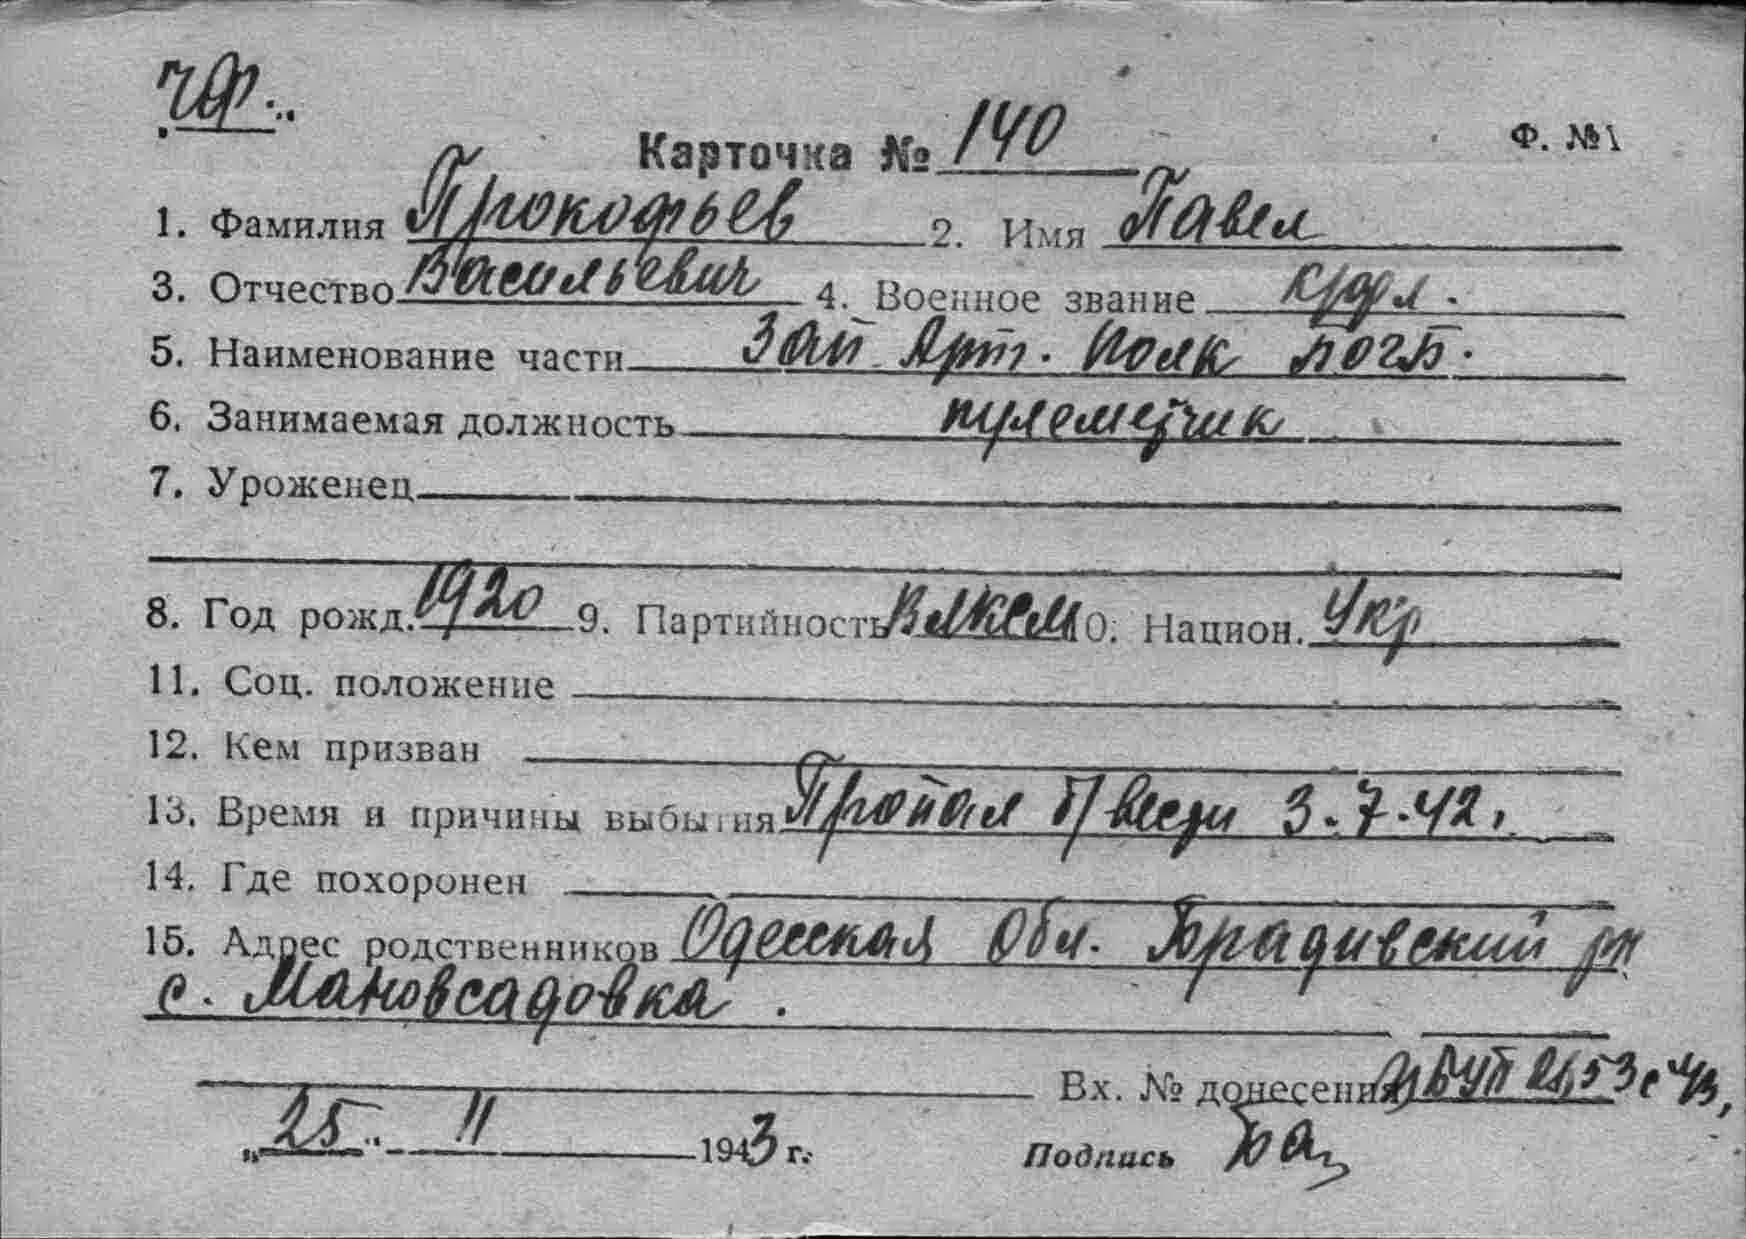 ЧФ.
Карточка № 140 Ф. №1
1. Фамилия Прокофьев 2. Имя Павел
3. Отчество Васильевич 4. Военное звание кр/фл.
5. Наименование части Зап. Арт. Полк
6. Занимаемая должность пулеметчик
7. Уроженец
8. Год рожд. 1920 9. Партийность ВЛКСМ 10. Национ. Укр
11. Соц. положение
12. Кем призван
13. Время и причины выбытия Пропал б/вести 3.7.42.
14. Где похоронен
15. Адрес родственников Одесская Обл. Врадивский рн
с. Мановсадовка.
Вх. № донесения
„25" II 1943 г.
Подпись